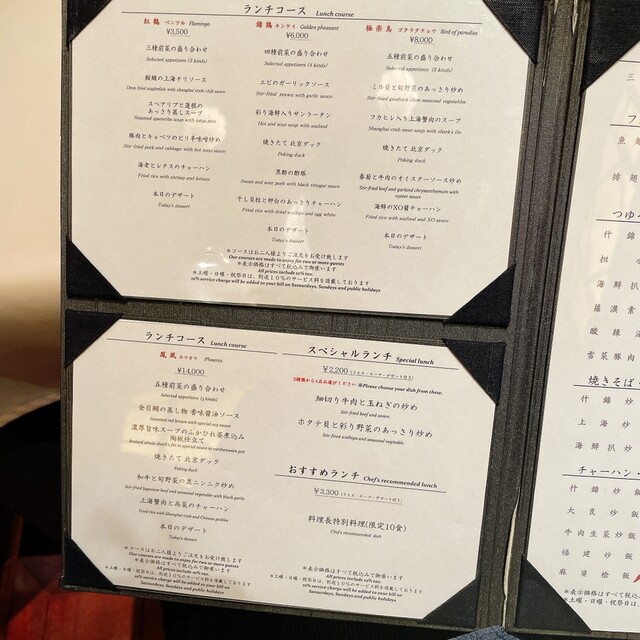 ランチコース Lunch course
紅鶴 ベニヅル Flamingo
¥3,500
三種前菜の盛り合わせ
Selected appetizers (3 kinds)
鮟鱇の上海チリソース
Deep fried anglerfish with shanghai style chili sauce
スペアリブと蓮根の
あっさり蒸しスープ
Steamed spareribs soup with lotus root
豚肉とキャベツのピリ辛味噌炒め
Stir-fried pork and cabbage with hot miso sauce
海老とレタスのチャーハン
Fried rice with shrimp and lettuce
本日のデザート
Today's dessert
錦鶏 キンケイ Golden pheasant
¥6,000
四種前菜の盛り合わせ
Selected appetizers (4 kinds)
エビのガーリックソース
Stir-fried prawn with garlic sauce
彩り海鮮入りサンラータン
Hot and sour soup with seafood
焼きたて 北京ダック
Peking duck
黒酢の酢豚
Sweet and sour pork with black vinegar sauce
干し貝柱と卵白のあっさりチャーハン
Fried rice with dried scallops and egg white
本日のデザート
Today's dessert
極楽鳥 ゴクラクチョウ Bird of paradise
¥8,000
五種前菜の盛り合わせ
Selected appetizers (5 kinds)
ミル貝と旬野菜のあっさり炒め
Stir-fried geoduck clam seasonal vegetables
フカヒレ入り上海蟹肉のスープ
Shanghai crab meat soup with shark's fin
焼きたて 北京ダック
Peking duck
春菊と牛肉のオイスターソース炒め
Stir-fried beef and garland chrysanthemum with
oyster sauce
海鮮のXO醤チャーハン
Fried rice with seafood and XO sauce
本日のデザート
Today's dessert
※コースはお二人様よりご注文をお受け致します
Our courses are made to enjoy for two or more guests
※表示価格はすべて税込みで御座います
All prices include 10% tax.
※土曜・日曜・祝祭日は、別途10％のサービス料を頂戴しております
10% service charge will be added to your bill on Saturdays, Sundays and public holidays
ランチコース Lunch course
鳳凰 ホウオウ Phoenix
¥14,000
五種前菜の盛り合わせ
Selected appetizers (5 kinds)
金目鯛の蒸し物 香味醤油ソース
Steamed red bream with special soy sauce
濃厚旨味スープのふかひれ姿煮込み
陶板仕立て
Braised whole shark's fin in special sauce in earthenware pot
焼きたて 北京ダック
Peking duck
和牛と旬野菜の黒ニンニク炒め
Stir-fried Japanese beef and seasonal vegetable with black garlic
上海蟹肉と高菜のチャーハン
Fried rice with Shanghai crab and Chinese pickles
本日のデザート
Today's dessert
※コースはお二人様よりご注文をお受け致します
Our courses are made to enjoy for two or more guests
※表示価格はすべて税込みで御座います
All prices include 10% tax.
※土曜・日曜・祝祭日は、別途10％のサービス料を頂戴しております
10% service charge will be added to your bill on
Saturdays, Sundays and public holidays
スペシャルランチ Special lunch
¥2,200 (ライス・スープ・デザート付き)
2種類から1品お選びください ※Please choose your dish from these.
細切り牛肉と玉ねぎの炒め
Stir-fried beef and onion
ホタテ貝と彩り野菜のあっさり炒め
Stir-fried scallops and seasonal vegetable
おすすめランチ Chef's recommended lunch
¥3,300 (ライス・スープ・デザート付き)
料理長特別料理(限定10食)
Chef's recommended dish
※表示価格はすべて税込みで御座います
All prices include 10% tax.
※土曜・日曜・祝祭日は、別途10％のサービス料を頂戴しております
10% service charge will be added to your bill on
Saturdays, Sundays and public holidays
三
フ
魚 麺
排 麺
つゆ
什 錦
担 々
海 鮮 扒
羅 漢 素
酸 辣 湯
雪 菜 豚 肉
焼きそば
什 錦 炒
上 海 炒
海 鮮 扒 炒
チャーハン
什 錦 炒
大 良 炒
牛 肉 生 菜 炒
福 建 炒
麻 婆 桧 飯
※表示価格はすべて税込
All
※土曜・日曜・祝祭日、
10%